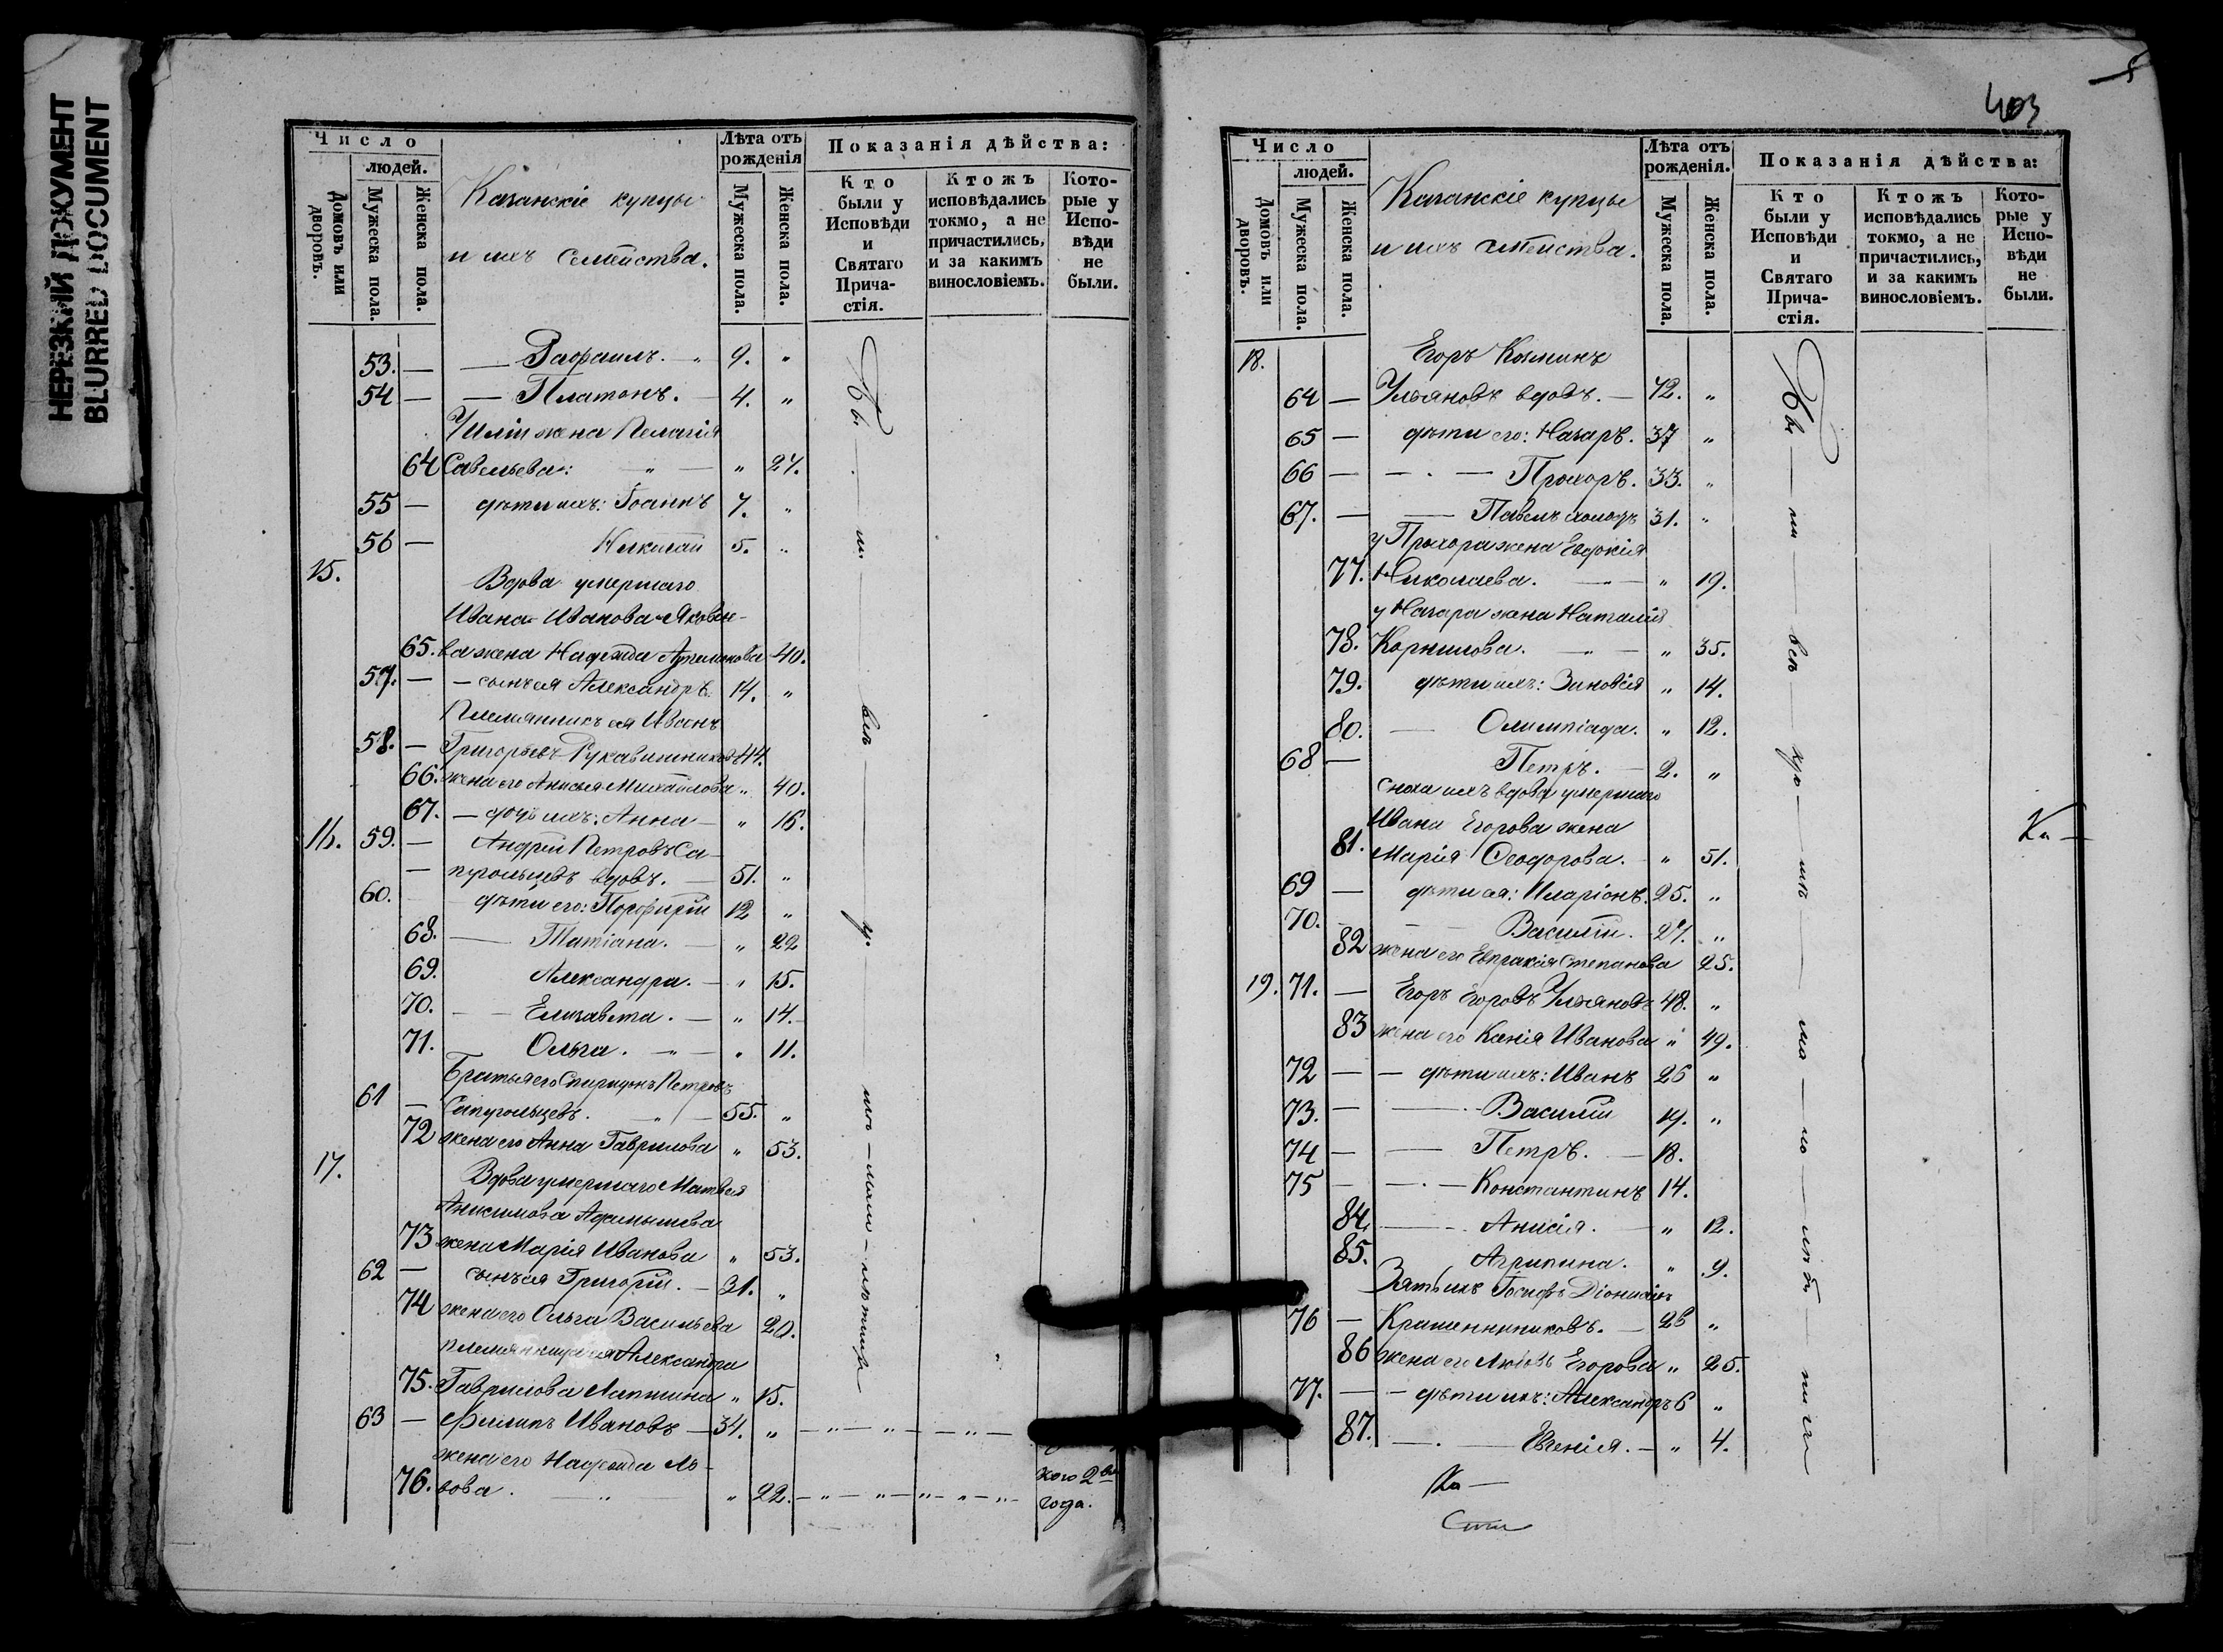 НЕРЕЗКИЙ ДОКУМЕНТ
BLURRED DOCUMENT
Число
людей.
Домовъ или дворовъ.
Мужеска пола.
Женска пола.
Казанскіе купцы
и ихъ семейства.
Лѣта отъ рожденія
Мужеска пола.
Женска пола.
Показанія дѣйства:
Кто были у Исповѣди и Святаго Прича-стія.
Ктожъ исповѣдались токмо, а не причастились, и за какимъ винословіемъ.
Кото-рые у Испо-вѣди не были.
53. — — Рафаилъ. — „ 9. „
54 — — Платонъ. — 4. „
У Иліи жена Пелагія
64 Савельева: „ — „ 27.
55 — дѣти ихъ: Іоаннъ 7. „
56 — Николай 5. „
15. Вдова умершаго
Ивана Иванова Яковле-
65. ва жена Надежда 40.
57. — — сынъ ея Александръ. 14. „
Племянникъ ея Иванъ
58. — Григорьевъ Рукавишниковъ 44.
66. жена его Анисья Михайлова „ 40.
67. — дочь ихъ: Анна — „ 16.
16. 59. — Андрей Петровъ Са-
— пугольцевъ вдовъ. — 51. „
60. дѣти его: Порфирій 12 „
68. — Татіана. — „ 22
69. Александра. — „ 15.
70. — — Елизавета. — „ 14.
71. Ольга. — „ — „ 11.
Братья его Спиридонъ Петровъ
61 — Сапугольцевъ. „ — 55. „
72 жена его Анна Гаврилова „ 53.
17. Вдова умершаго Матвея
Анисимова
73 жена Марія Иванова „ 53.
62 — сынъ ея Григорій. — 31. „
74 жена его Ольга Васильева 20.
племянница ея Александра
75. Гаврилова Лапшина „ 15.
63 — Филипъ Ивановъ — 34. „ — „ — „ — „ —
жена его Надежда Ль-
76. вова. — „ „ 22. — „ — „ — „ — „
2
года.
403
Число
людей.
Домовъ или дворовъ.
Мужеска пола.
Женска пола.
Казанскіе купцы
и ихъ семейства.
Лѣта отъ рожденія.
Мужеска пола.
Женска пола.
Показанія дѣйства:
Кто были у Исповѣди и Святаго Прича-стія.
Ктожъ исповѣдались токмо, а не причастились, и за какимъ винословіемъ.
Кото-рые у Испо-вѣди не были.
18. Егоръ Козминъ
64 — Ульяновъ вдовъ. — 72. „
65 — дѣти его: Назаръ. 37 „
66 — — . — Прохоръ. 33. „
67. — — Павелъ холостъ 31. „
у Прохора жена Евдокія
77. Николаева. — „ — „ 19.
у Назара жена Наталія
78. Корнилова. — „ — „ 35.
79. дѣти ихъ: Зиновія „ 14.
80. — Олимпіада. „ 12.
68 — Петръ. — 2. „
сноха ихъ вдова умершаго
Ивана Егорова жена
81. Марія Ѳеодорова. — „ 51.
69 — дѣти ея: Иларіонъ. 25. „
70. — — Василій. 27. „
82 жена его Евпраксія Степанова 25.
19. 71. — Егоръ Егоровъ Ульяновъ 48. „
83 жена его Ксенія Иванова „ 49.
72 — — дѣти ихъ: Иванъ 26 „
73. — — Василій 19. „
74 — — Петръ. — 18.
75 — — . — Константинъ 14.
84. — Анисія. — „ 12.
85. Агрипина. „ 9.
Зять ихъ Іосифъ Діонисіевъ
76 — Крашенинниковъ. — 26 „
86 жена его Любовь Егорова „ 25.
77. — — дѣти ихъ: Александръ 6 „
87. — . — Евгенія. — „ 4.
Ка —
Ка —